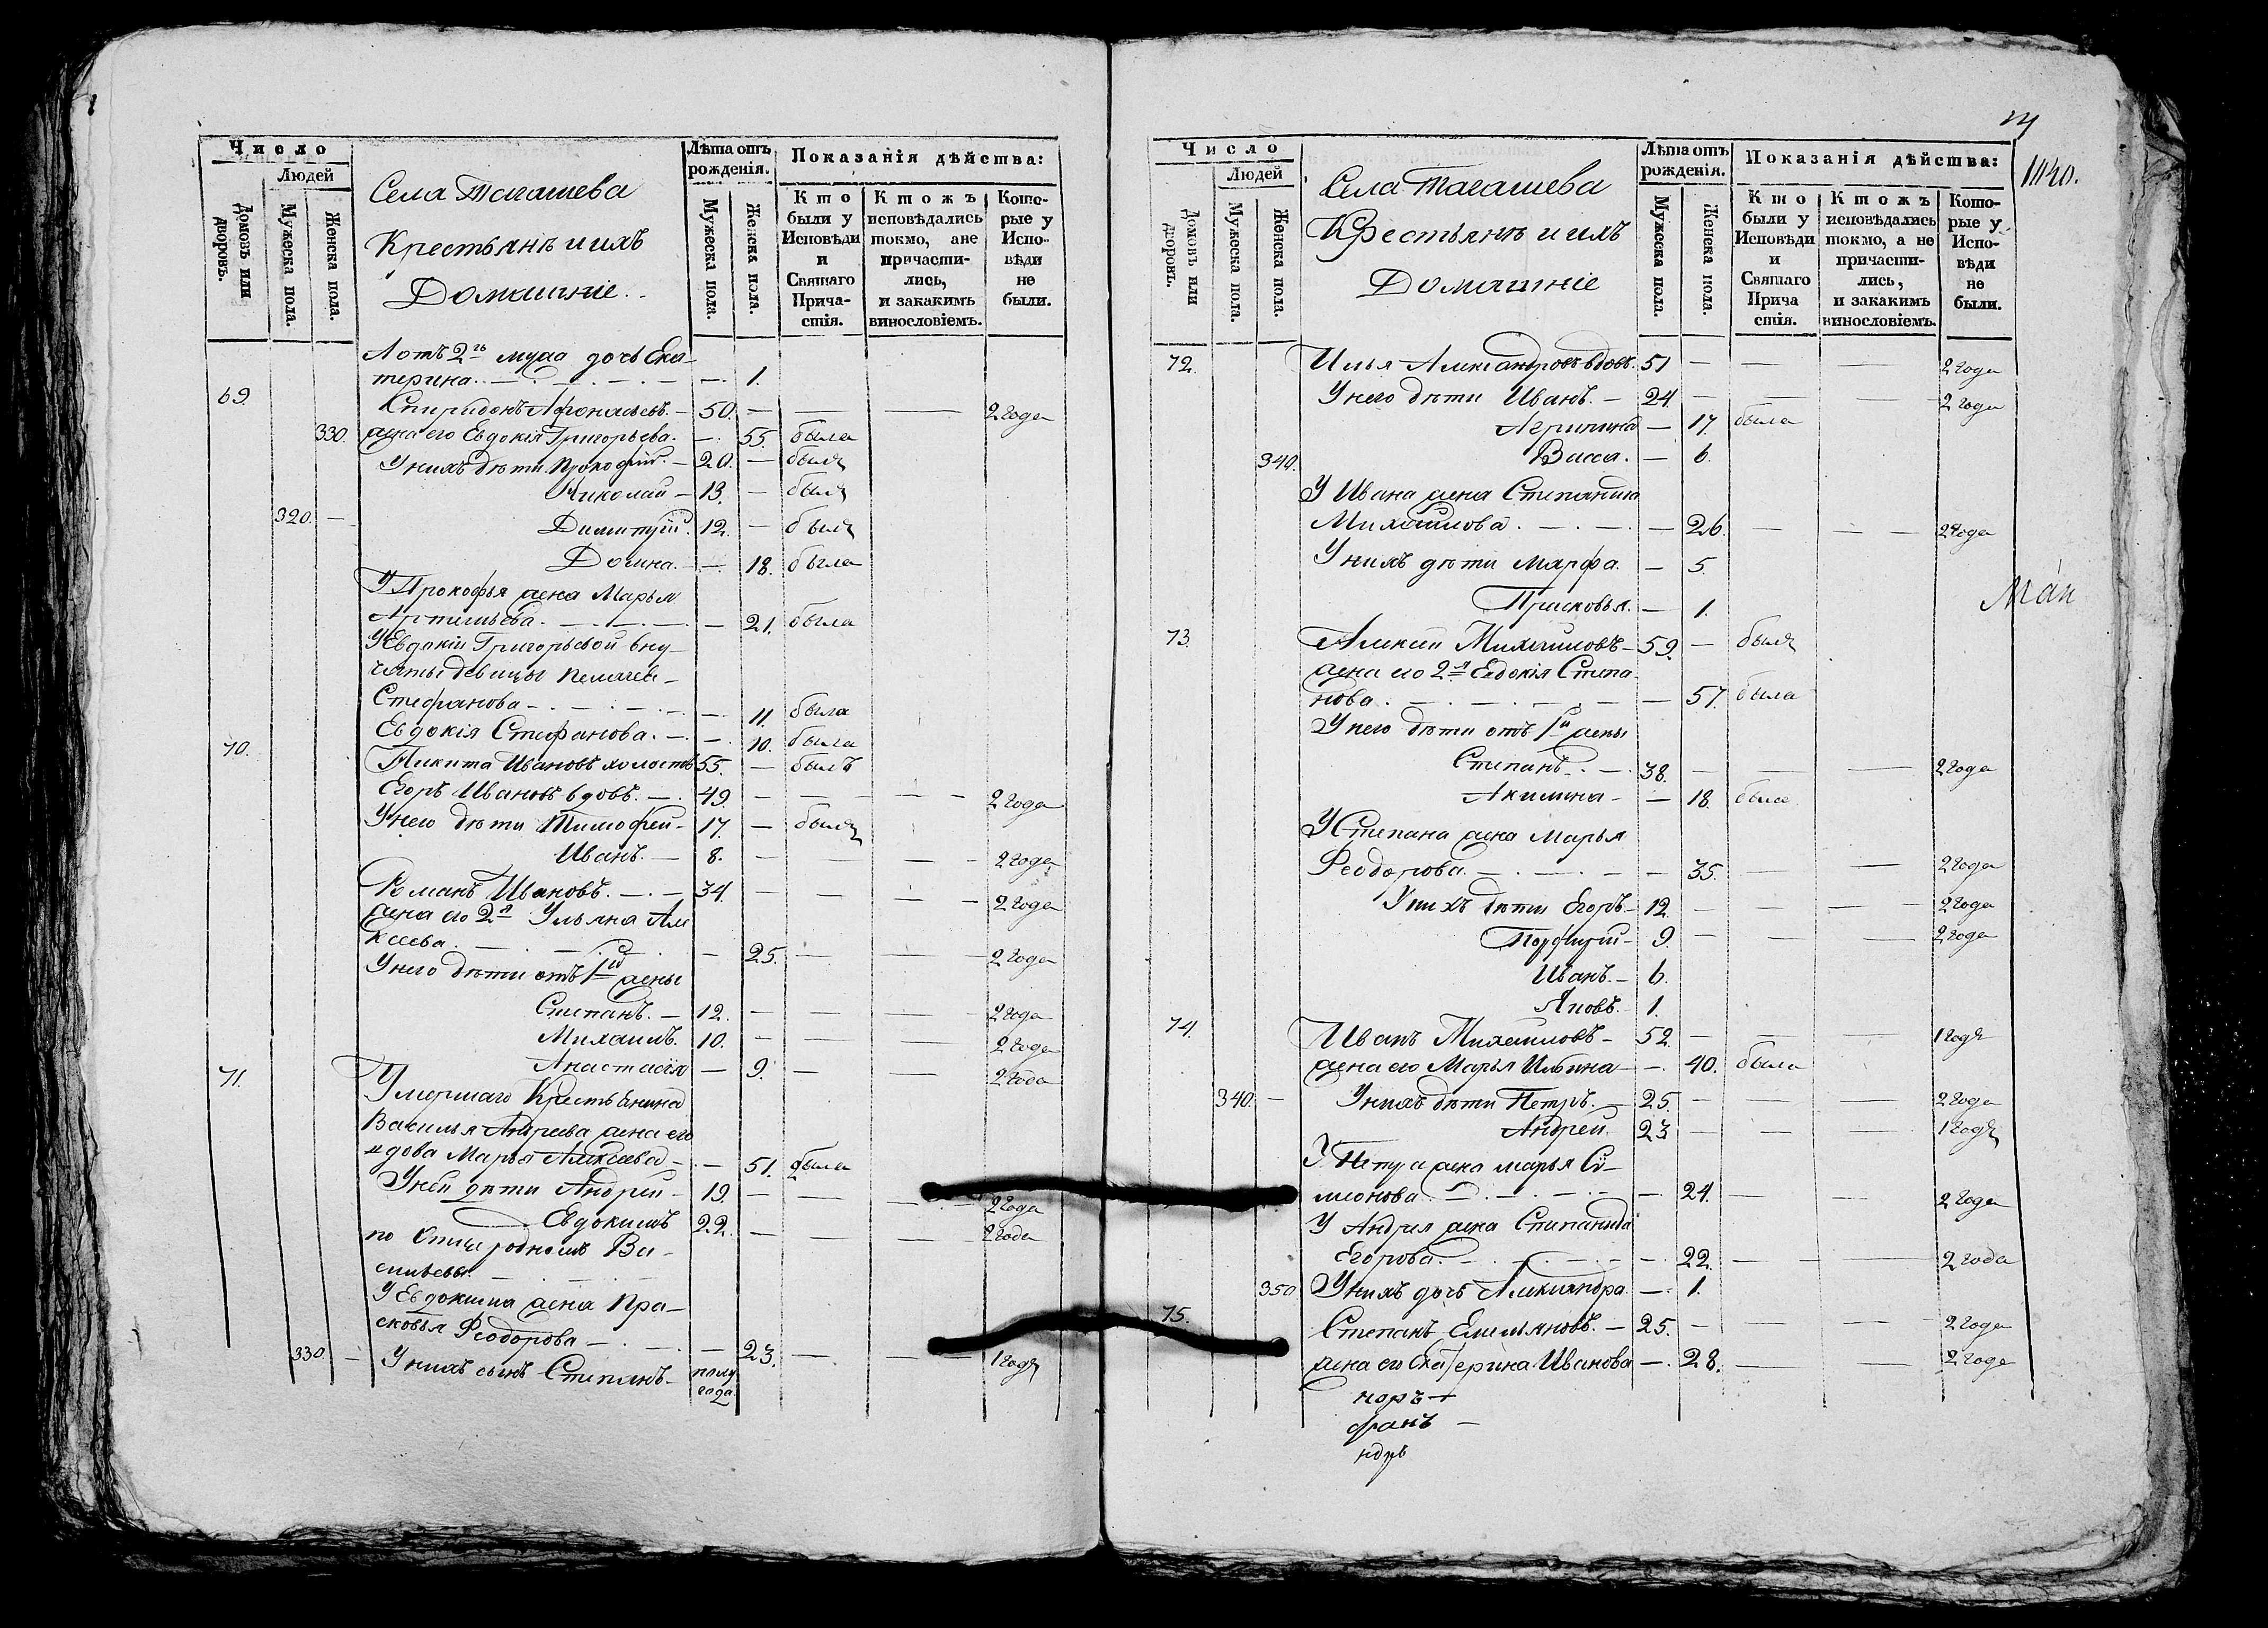 Число
Людей
Домовъ или дворовъ.
Мужеска пола.
Женска пола.
Села Тагашева
Крестьянъ и ихъ
Домашніе.
Лѣта отъ рожденія.
Мужеска пола.
Женска пола.
Показанія дѣйства:
Кто были у Исповѣди и Святаго Причастія.
Ктожъ исповѣдались токмо, ане причастились, и закакимъ винословіемъ.
Которые у Исповѣди не были.
А отъ 2го мужа дочь Ека-
терина. — — 1.
69. Спиридонъ Афонасьевъ. — 50. — — — 2 года
330. жена его Евдокія Григорьева. — 55. была
У нихъ дѣти Прокофій. — 20. — былъ
Николай — 13. — былъ
320. — Димитрій. 12. — былъ
Домна. — 18. была
У Прокофья жена Марья
Артемьева. — — 21. была
У Евдокіи Григорьевой вну-
чаты девицы Пелагея
Стефанова — — 11. была
Евдокія Стефанова. — 10. была
70. Никита Ивановъ холостъ 55. — былъ
Егоръ Ивановъ вдовъ. — 49. — — — 2 года
У него дѣти Тимофей — 17. — былъ
Иванъ. — 8. — — — 2 года
Романъ Ивановъ. — 34. — — — 2 года
жена его 2я Ульяна Але
ксеева. — 25. — — 2 года
У него дѣти отъ 1й жены
Степанъ. — 12. — — — 2 года
Михаилъ. 10. — — — 2 года
Анастасія — 9. — — 2 года
71. Умершаго Крестьянина
Василья Андреева жена его
вдова Марья Алексеева — 51. была
У ней дѣти Андрей — 19. — — — 2 года
Евдокимъ 22. — — — 2 года
по отце родномъ Ва-
сильевы.
У Евдокима жена Пра-
сковья Феодорова — — 23. — — 1 годъ
330. — У нихъ сынъ Степанъ — полу
года
24
1840.
Число
Людей
Домовъ или дворовъ.
Мужеска пола.
Женска пола.
Села Тагашева
Крестьянъ и ихъ
Домашніе
Лѣта отъ рожденія.
Мужеска пола.
Женска пола.
Показанія дѣйства:
Кто были у Исповѣди и Святаго Прича стія.
Ктожъ исповѣдались токмо, а не причастились, и закакимъ винословіемъ.
Которые у Исповѣди не были.
72. Илья Александровъ вдовъ. 51 — — — 2 года
У него дѣти Иванъ. — 24. — — — 2 года
Агрипина — 17. была
340. Васса. — 6.
У Ивана жена Степанида
Михайлова. — 26. — — 2 года
У нихъ дѣти Марфа. — 5.
Прасковья. — 1.
73. Алексей Михайловъ — 59. — былъ
жена его 2я Евдокія Степа
нова. — 57. была
У него дѣти отъ 1й жены
Степанъ. — 38. — — — 2 года
Акилина — — 18. была
У Степана жена Марья
Феодорова. — 35. — — 2 года
У нихъ дѣти Егоръ — 12. — — — 2 года
Порфирій — 9. — — — 2 года
Иванъ. — 6.
Яковъ. 1.
74. Иванъ Михайловъ — 52. — — — 1 годъ
жена его Марья Ильина — 40. была
340. — У нихъ дѣти Петръ. — 25. — — — 2 года
Андрей. 23 — — — 1 годъ
У Петра жена Марья Си-
меонова. — 24. — — 2 года
У Андрея жена Степанида
Егорова. — 22. — — 2 года
350 У нихъ дочь Александра. — 1.
75. Степанъ Емельяновъ. — 25. — — — 2 года
жена его Екатерина Иванова — 28. — — 2 года